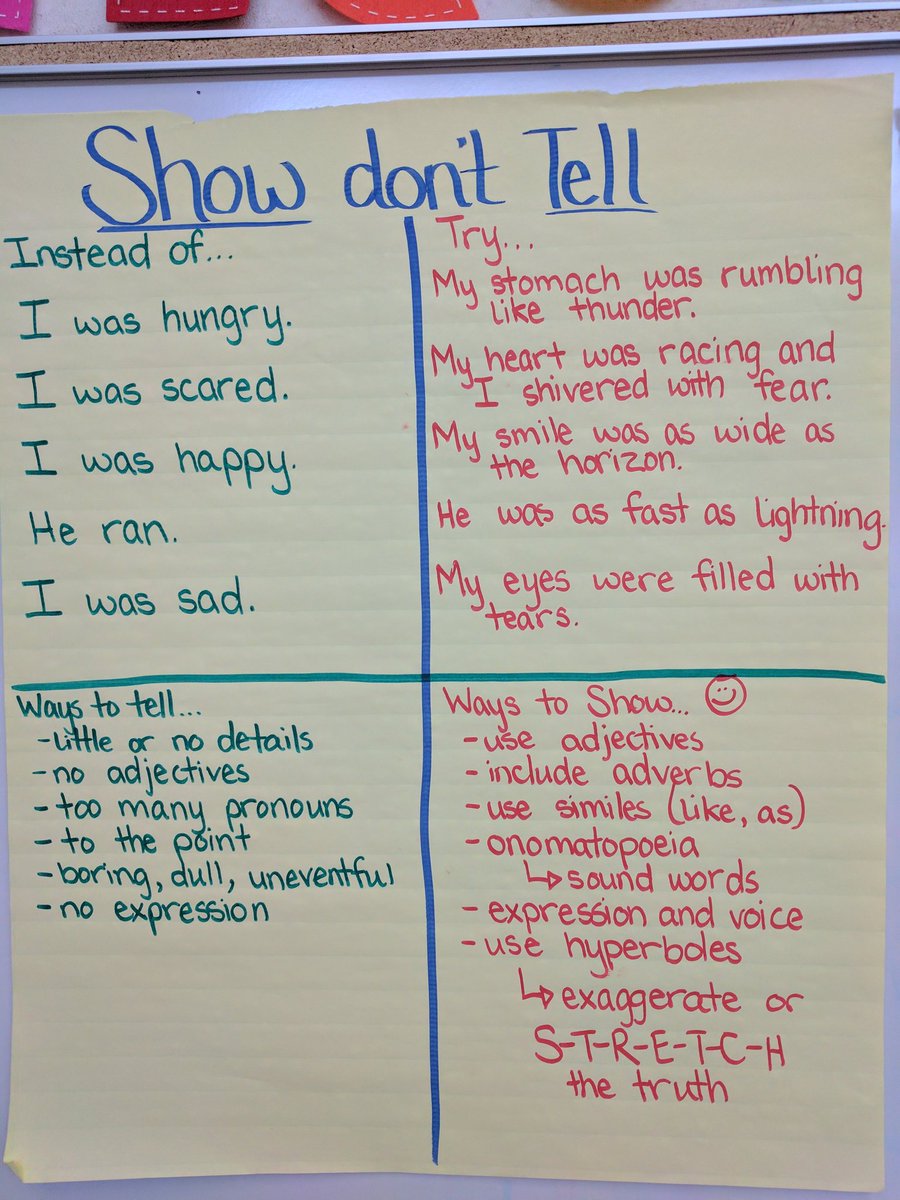 Show don't Tell
Instead of...
I was hungry.
I was scared.
I was happy.
He ran.
I was sad.
Try...
My stomach was rumbling
like thunder.
My heart was racing and
I shivered with fear.
My smile was as wide as
the horizon.
He was as fast as lightning.
My eyes were filled with
tears.
Ways to tell...
-little or no details
-no adjectives
-too many pronouns
-to the point
-boring, dull, uneventful
-no expression
Ways to Show...
-use adjectives
-include adverbs
-use similes (like, as)
-onomatopoeia
↳sound words
-expression and voice
-use hyperboles
↳exaggerate or
S-T-R-E-T-C-H
the truth